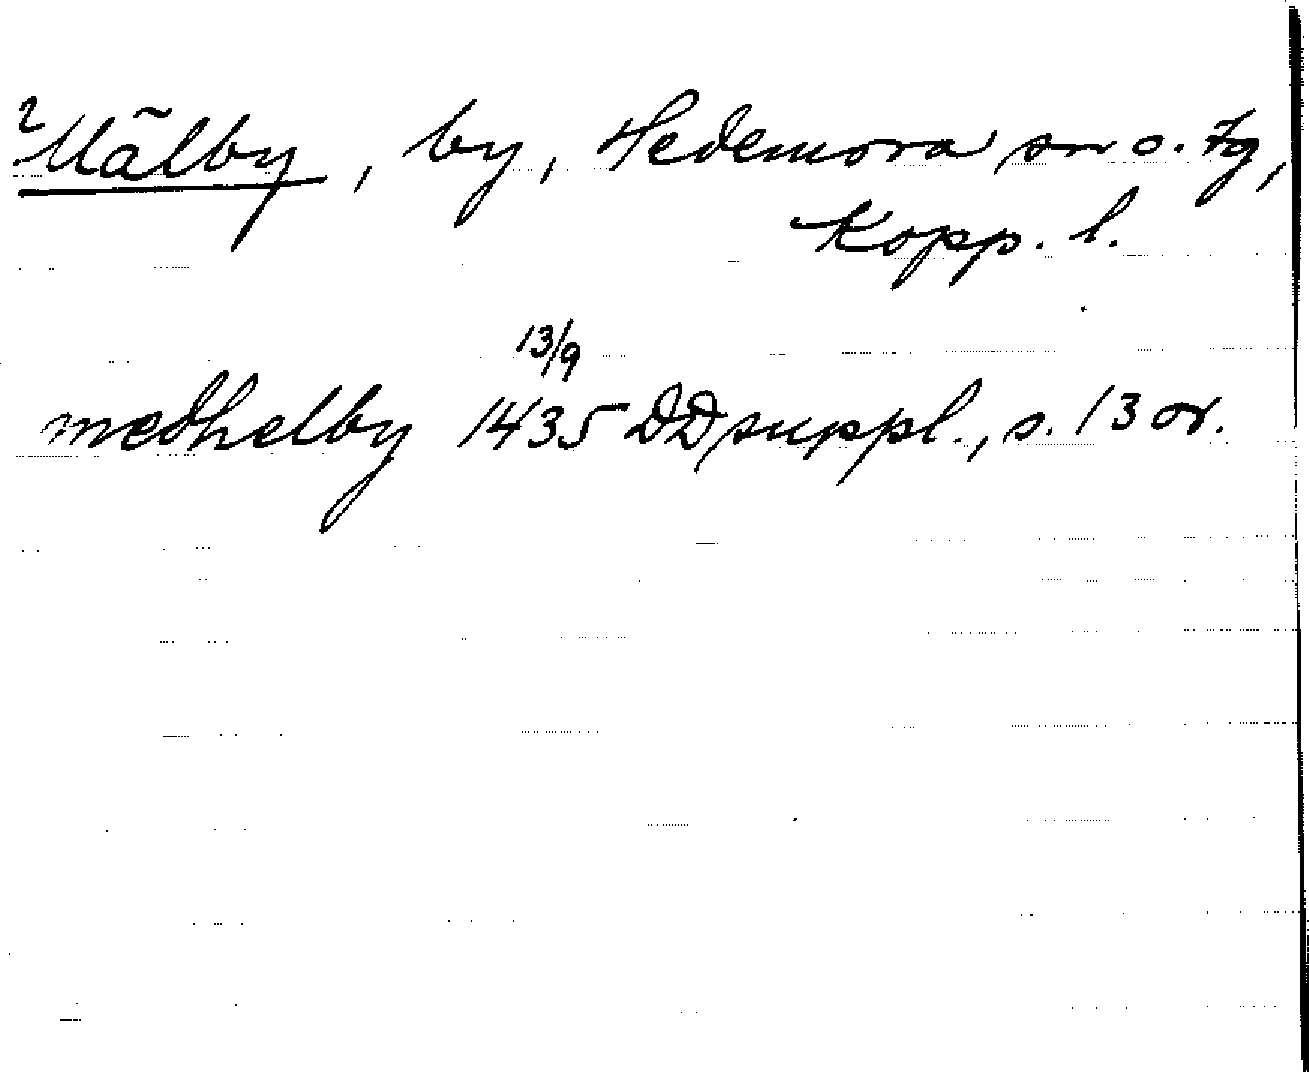 2
Mälby, by, Hedemora sn o. tg,
Kopp. l.
13/9
medhelby 1435 DD suppl., s. 13 or.